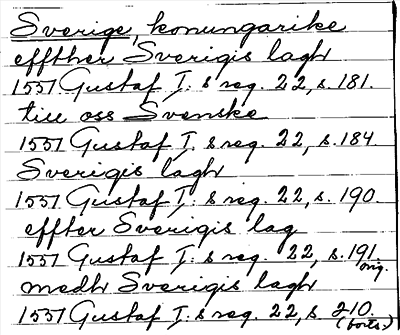 Sverige, konungarike
effther Sverigis lagh
1551 Gustaf I:s reg. 22, s. 181.
till oss Svenske
1551 Gustaf I:s reg. 22, s. 184
Sverigis lagh
1551 Gustaf I:s reg. 22, s. 190.
effter Sverigis lag
1551 Gustaf I:s reg. 22, s. 191 orig.
medh Sverigis lagh
1551 Gustaf I:s reg. 22, s. 210 (forts.)